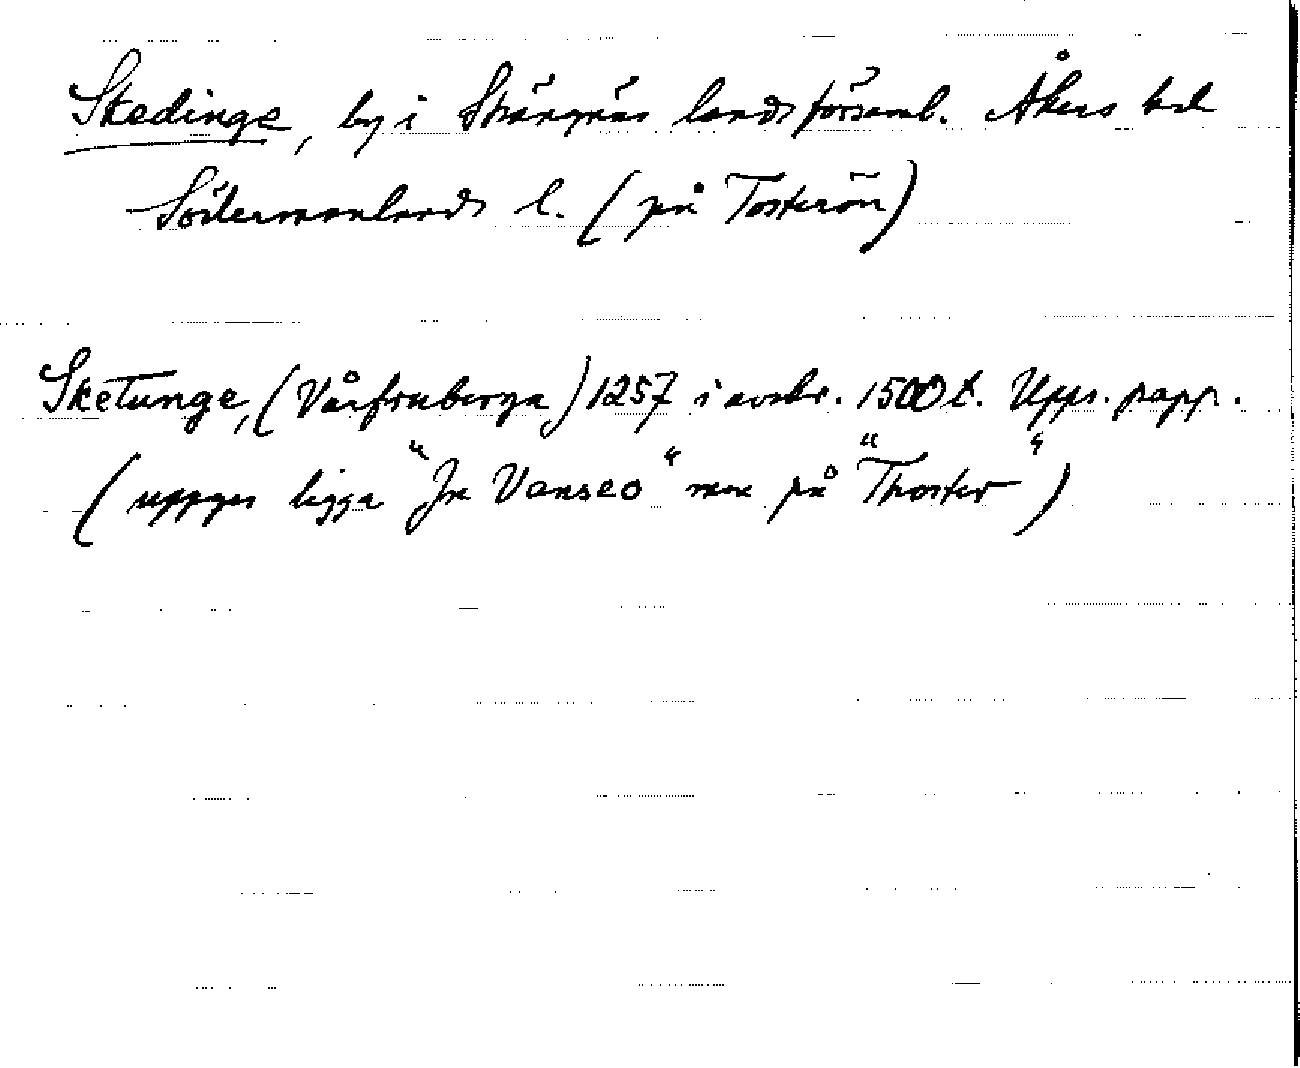 Skedinge, by i Strängnäs landsförsaml. Åkers hd
Södermanlands l. (på Tosterön)
Sketunge, (Vårfruberga) 1257 i avskr. 1500 t. Upps. papp.
(uppges ligga "In Vanseo" men på "Thoster")